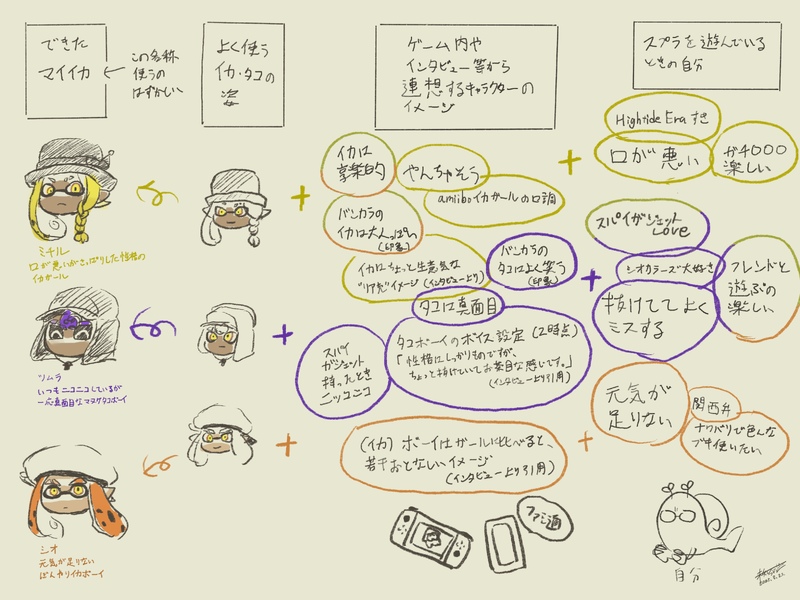 できた
マイイカ
この名称
使うの
はずかしい
よく使う
イカ・タコの
姿
ゲーム内や
インタビュー等から
連想するキャラクターの
イメージ
スプラを遊んでいる
ときの自分
ミチル
口が悪いがさっぱりした性格の
イカガール
イカは
享楽的
やんちゃそう
amiiboイカガールの口調
バンカラの
イカは大人っぽい
(印象)
イカはちょっと生意気な
"リア充"イメージ(インタビューより)
Hightide Eraすき
口が悪い
ガチ〇〇〇
楽しい
ツムラ
いつもニコニコしているが
一応真面目なマヌケタコボーイ
バンカラの
タコはよく笑う
(印象)
タコは真面目
スパイ
ガジェット
持ったとき
ニッコニコ
タコボーイのボイス設定(2時点)
「性格にしっかりものですが、
ちょっと抜けていてお茶目な感じです。」
(インタビューより引用)
スパイガジェット
Love
シオカラーズ大好き
抜けててよく
ミスする
フレンドと
遊ぶの
楽しい
シオ
元気が足りない
ぼんやりイカボーイ
(イカ)ボーイはガールに比べると、
若干おとなしいイメージ
(インタビューより引用)
元気が
足りない
関西弁
ナワバリで色んな
ブキ使いたい
ファミ通
自分